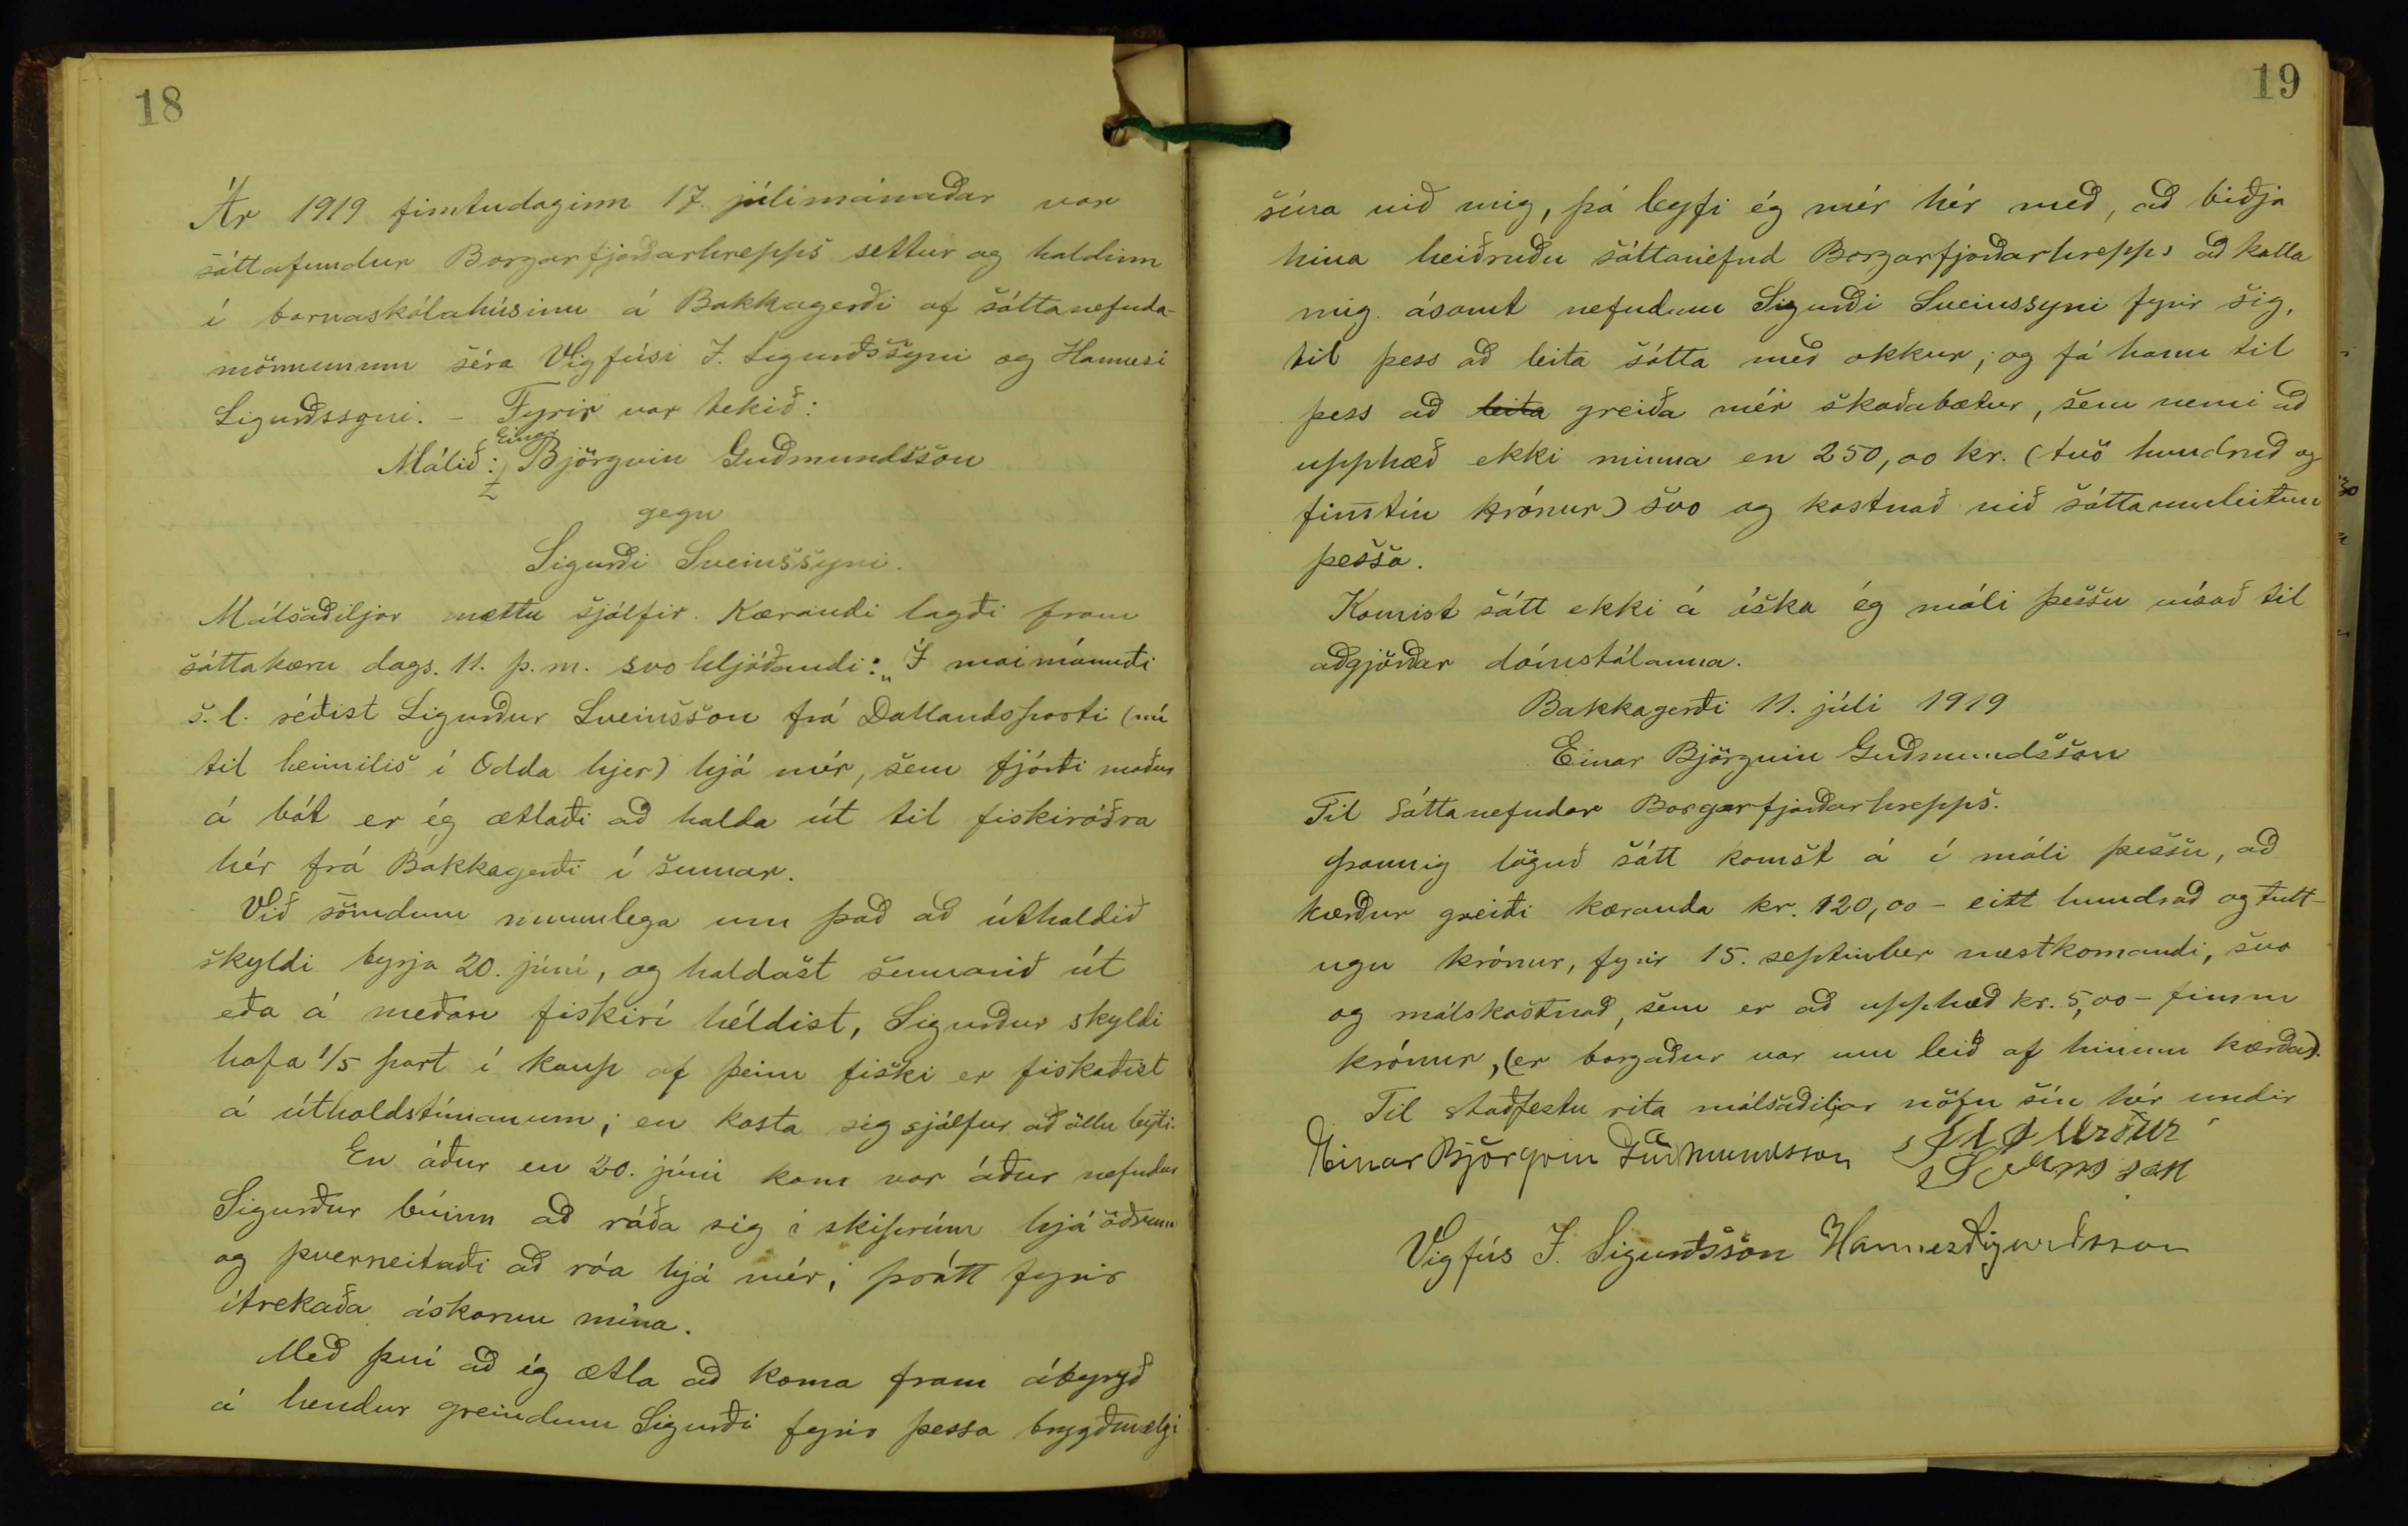 18
Ár 1919 fimtudaginn 17. júlímánaðar var
sáttafundur Borgarfjarðarhrepps settur og haldinn
í barnaskólahúsinu á Bakkagerði af sáttanefnda-
mönnunum séra Vigfúsi I. Sigurðssyni og Hannesi
Sigurðssyni. - Fyrir var tekið:
Málið: Einar Björgvin Guðmundsson
gegn
Sigurði Sveinssyni.
Málsaðiljar mættu sjálfir. Kærandi lagði fram
sáttakæru dags. 11. þ.m. svo hljóðandi: „Í maímánuði
s.l. réðist Sigurður Sveinsson frá Dallandsparti (nú
til heimilis í Odda hjer) hjá mér, sem fjórði maður
á bát er ég ætlaði að halda út til fiskiróðra
hér frá Bakkagerði í sumar.
Við sömdum munnlega um það að úthaldið
skyldi byrja 20. júní, og haldast sumarið út
eða á meðan fiskirí héldist, Sigurður skyldi
hafa 1/5 part í kaup af þeim fiski er fiskaðist
á úthaldstímanum; en kosta sig sjálfur að öllu leyti.
En áður en 20. júní kom var áður nefndur
Sigurður búinn að ráða sig í skiprúm hjá öðrum
og þverneitaði að róa hjá mér; þrátt fyrir
ítrekaða áskorun mína.
Með því að ég ætla að koma fram ábyrgð
á hendur greindum Sigurði fyrir þessa brygðmælgi
19
sína við mig, þá leyfi ég mér hér með, að biðja
hina heiðruðu sáttanefnd Borgarfjarðarhrepps að kalla
mig ásamt nefndum Sigurði Sveinssyni fyrir sig,
til þess að leita sátta með okkur; og fá hann til
þess að leita greiða mér skaðabætur, sem nemi að
upphæð ekki minna en 250,00 kr. (tvö hundruð og
fimtíu krónur) svo og kostnað við sáttaumleitun
þessa.
Komist sátt ekki á óska ég máli þessu vísað til
aðgjörðar dómstólanna.
Bakkagerði 11. júlí 1919
Einar Björgvin Guðmundsson
Til sáttanefndar Borgarfjarðarhrepps.
Þannig löguð sátt komst á í máli þessu, að
kærður greiði kæranda kr. 120,00 - eitt hundrað og tutt-
ugu krónur, fyrir 15. september næstkomandi, svo
og málskostnað, sem er að upphæð kr. 5,00 - fimm
krónur, (er borgaður var um leið af hinum kærða).
Til staðfestu rita málsaðiljar nöfn sín hér undir
Einar Björgvin Guðmundsson Sigurður
Sveinsson
Vigfús I. Sigurðsson Hannes Sigurðsson